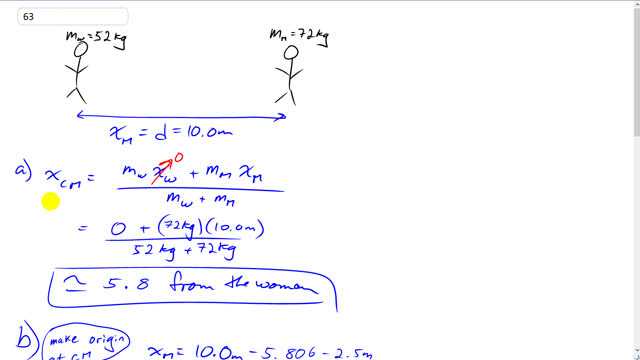 63
m_w = 52 kg
m_M = 72 kg
x_M = d = 10.0 m
a) x_CM = (m_w x_w + m_M x_M) / (m_w + m_M)
0
= (0 + (72 kg)(10.0 m)) / (52 kg + 72 kg)
≃ 5.8 from the woman
b) make origin at CM
x_M = 10.0 m - 5.806 - 2.5 m